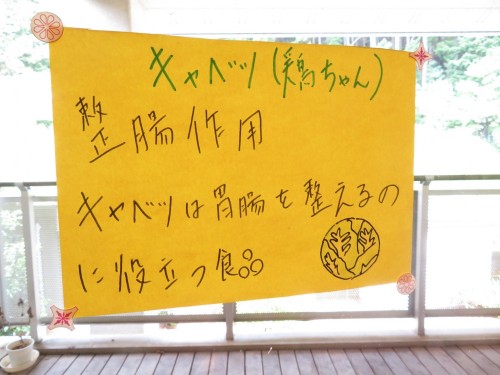 キャベツ(鶏ちゃん)
整腸作用
キャベツは胃腸を整えるの
に役立つ食品